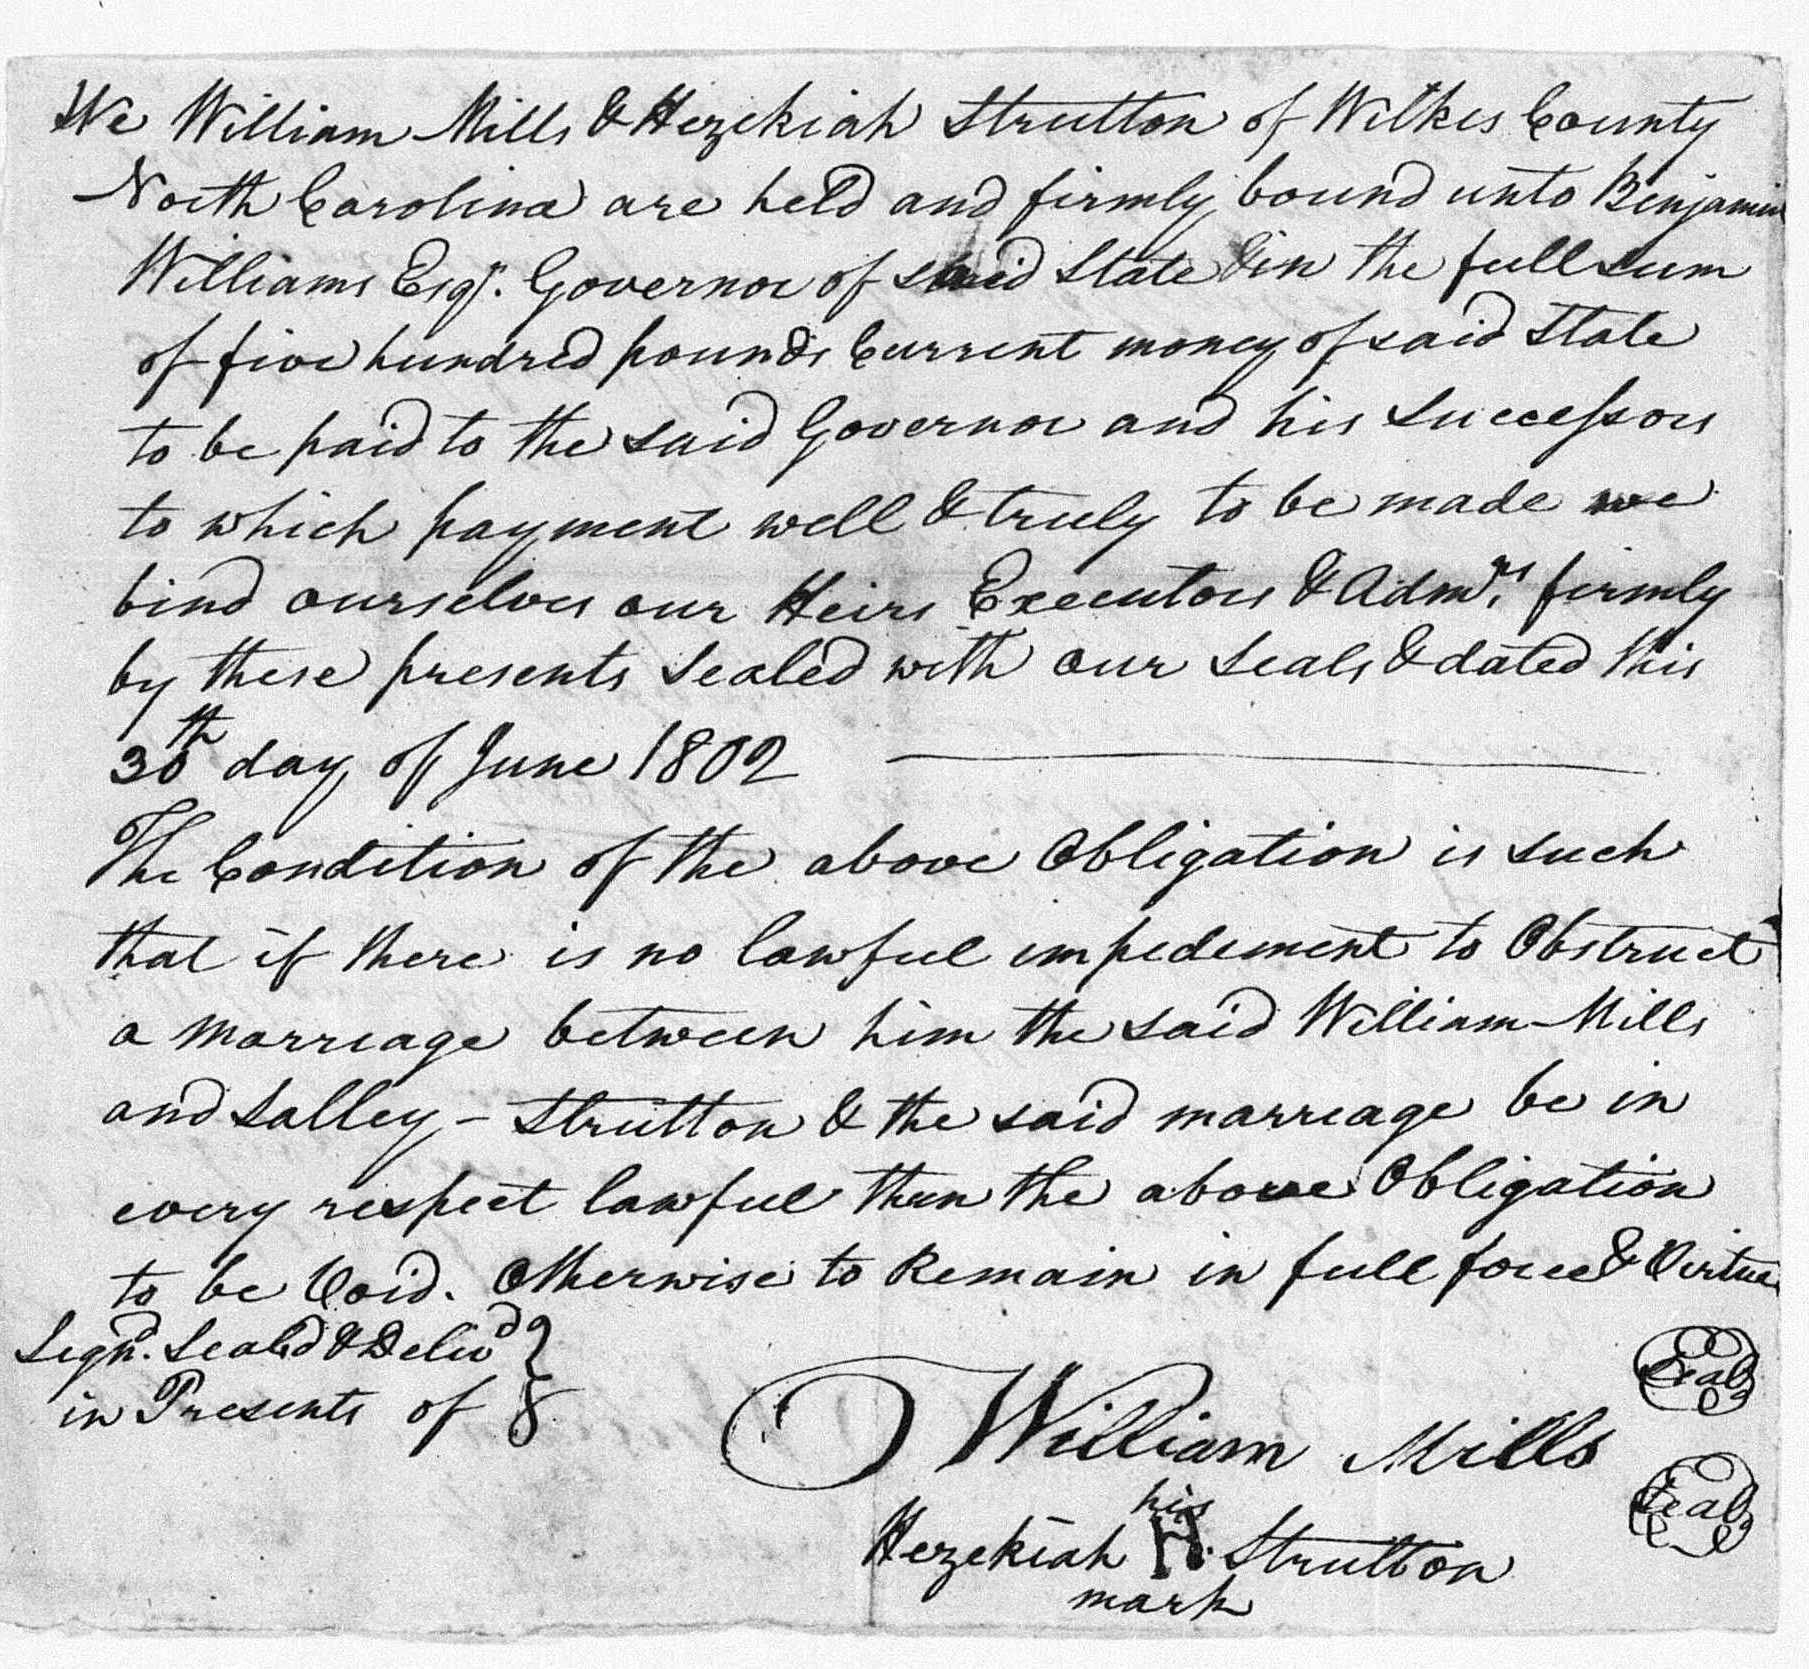 We William Mills & Hezekiah Strutton of Wilkes County
North Carolina are held and firmly bound unto Benjamin
Williams Esqr. Governor of said State & in the full sum
of five hundred pounds Current money of said State
to be paid to the said Governor and his Successors
to which payment well & truly to be made we
bind ourselves our Heirs Executors & Admrs. firmly
by these presents Sealed with our Seals & dated this
30th day of June 1802
The Condition of the above Obligation is such
that if there is no lawful impedement to Obstruct
a Marreage between him the said William Mills
and Salley - Strutton & the said marreage be in
every respect lawful then the above Obligation
to be Void. Otherwise to Remain in full force & Virtue
Sign'd. Seal'd & Deliv'd
in Presents of
Seal
William Mills
Seal
his
Hezekiah H. Strutton
mark